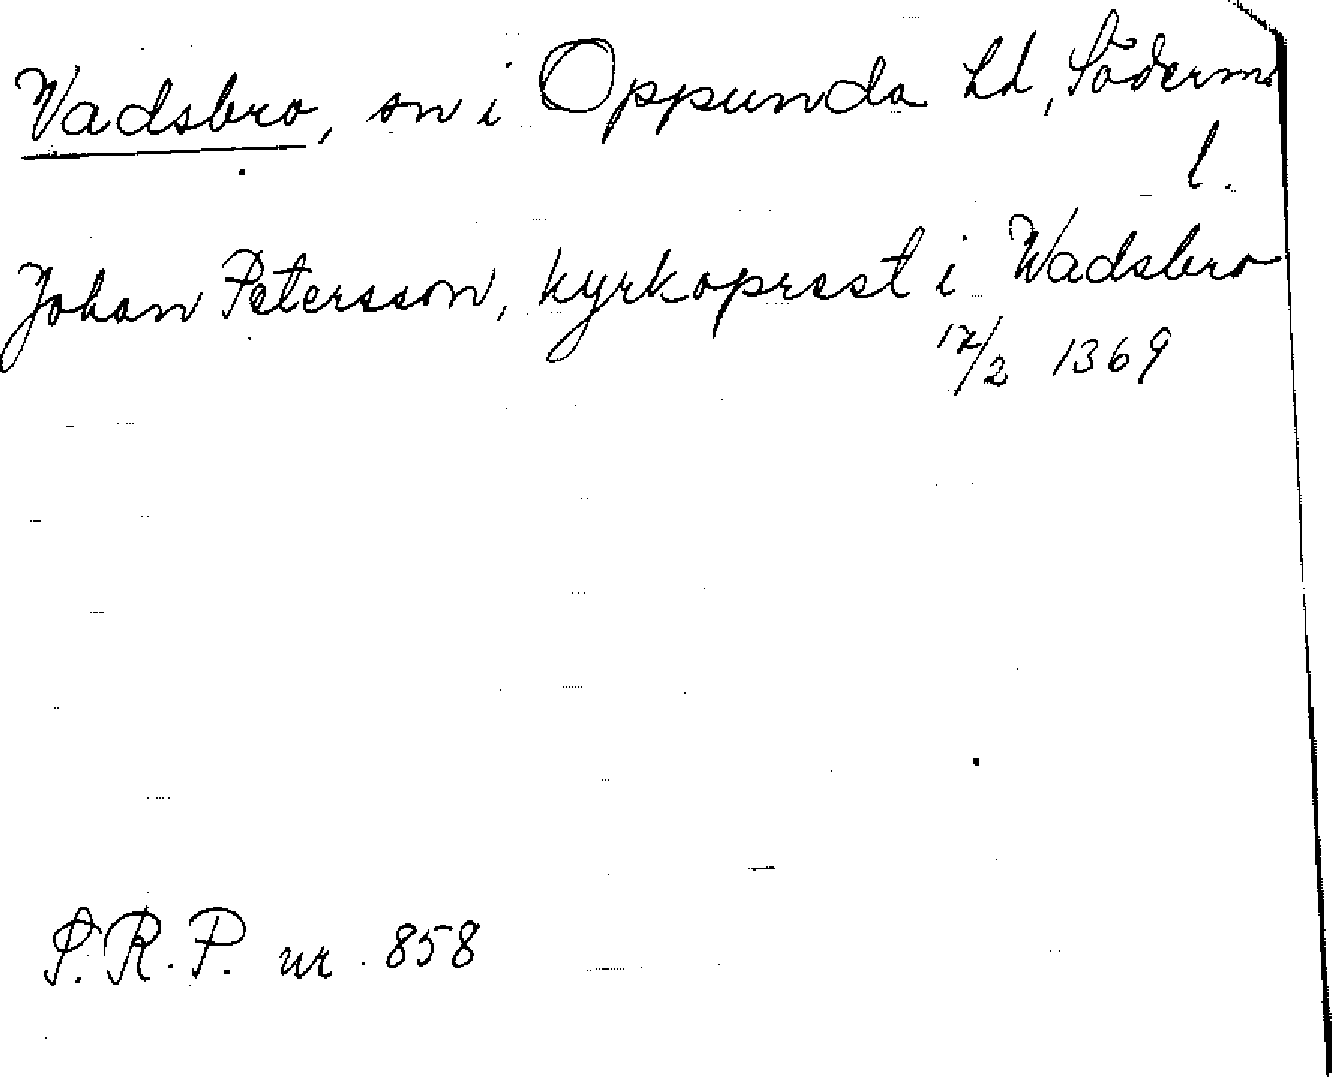 Vadsbro, sn i Oppunda hd, Söderm.
l.
Johan Petersson, kyrkoprest i Wadsbro
17/2 1369
S.R.P. nr. 858